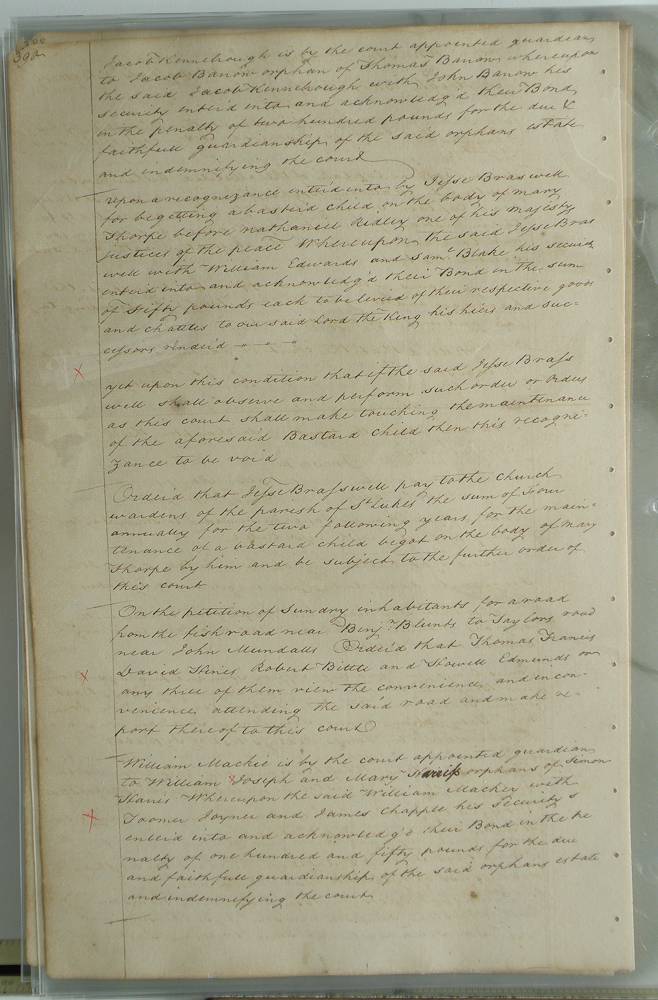 392
Jacob Kennebrough is by the court appointed guardian
to Jacob Barrow orphan of Thomas Barrow whereupon
the said Jacob Kennebrough with John Barrow his
security enter'd into and acknowledg'd their Bond
in the penalty of two hundred pounds for the due &
faithfull guardianship of the said orphans estate
and indemnifying the court
Upon a recognizance enter'd into by Jesse Braswell
for begetting a basterd child on the body of Mary
Thorpe before Nathaniel Ridley one of his majesty
justices of the peace Whereupon the said Jesse Bras
well with William Edwards and Saml Blake his securi
enterd into and acknowledg'd their Bond in the sum
of fifty pounds each to be levied of their respective goods
and chattles to our said Lord the King his heirs and suc=
cessors renderd
yet upon this condition that if the said Jesse Brass
well shall observe and perform such order or orders
as this court shall make touching the maintenance
of the aforesaid Bastard child then this recogni=
zance to be void
Order'd that Jesse Brasswell pay to the church
wardens of the parish of St Lukes the sum of Four
annually for the two following years for the main=
tenance of a bastard child begot on the body of Mary
Thorpe by him and be subject to the further order of
this court
On the petition of sundry inhabitants for a road
from the fish road near Benjn Blunts to Taylors road
near John Mundalls Order'd that Thomas Francis
David Hines Robert Bittle and Howell Edmunds or
any three of them view the convenience and incon=
venience attending the said road and make re=
port thereof to this court
William Mackie is by the court appointed guardian
to William Joseph and Mary Harris orphans of Simon
Harris Whereupon the said William Mackey with
Toomer Joyner and James Chapple his Securitys
enterd into and acknowledg'd their Bond in the pe
nalty of one hundred and fifty pounds for the due
and faithfull guardianship of the said orphans estate
and indemnifying the court